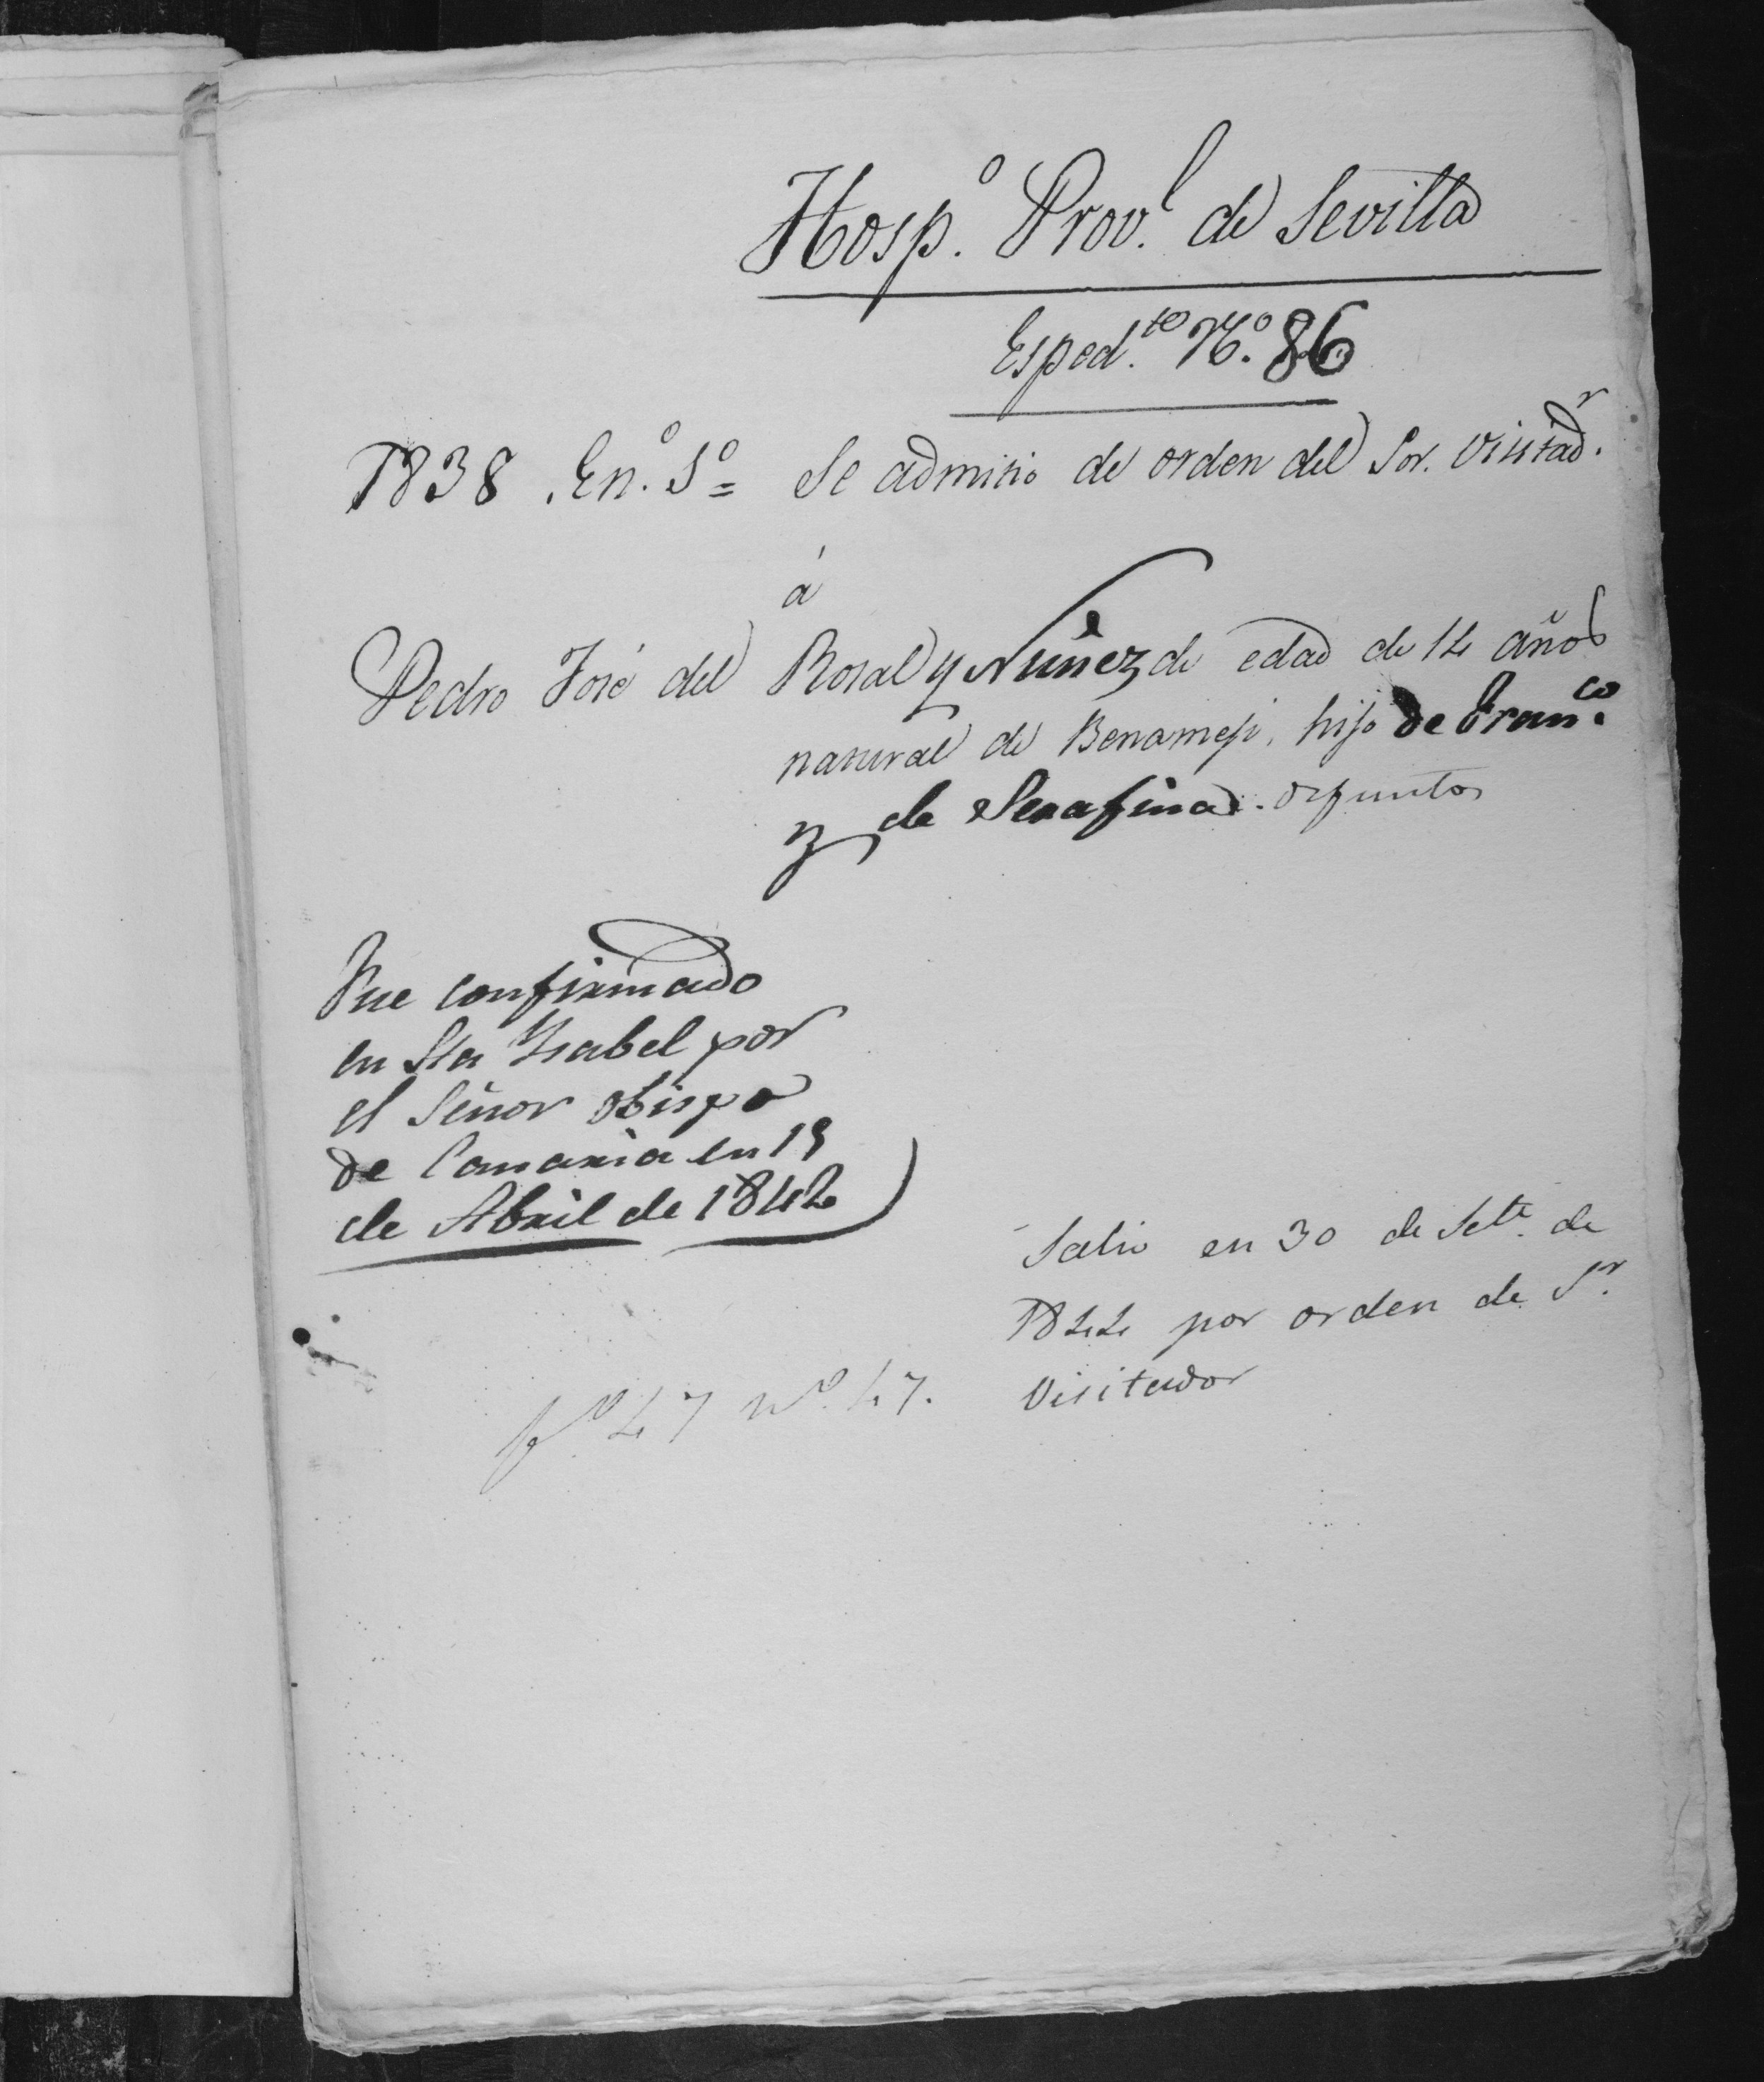 Hosp.º Prov.l de Sevilla
Esped.te N.º 86
1838. En.º 5º = Se admitio de orden del Sor. Visitad.r
á
Pedro José del Rosal y Nuñez de edad de 14 años
natural de Benameji, hijo de Fran.co
y de Serafina. difuntos
Fue confirmado
en Sta Ysabel por
el Señor obispo
de Canaria en 19
de Abril de 1842
Salio en 30 de Set.e de
1844 por orden de S.r
Visitador
fº 47 nº. 47.